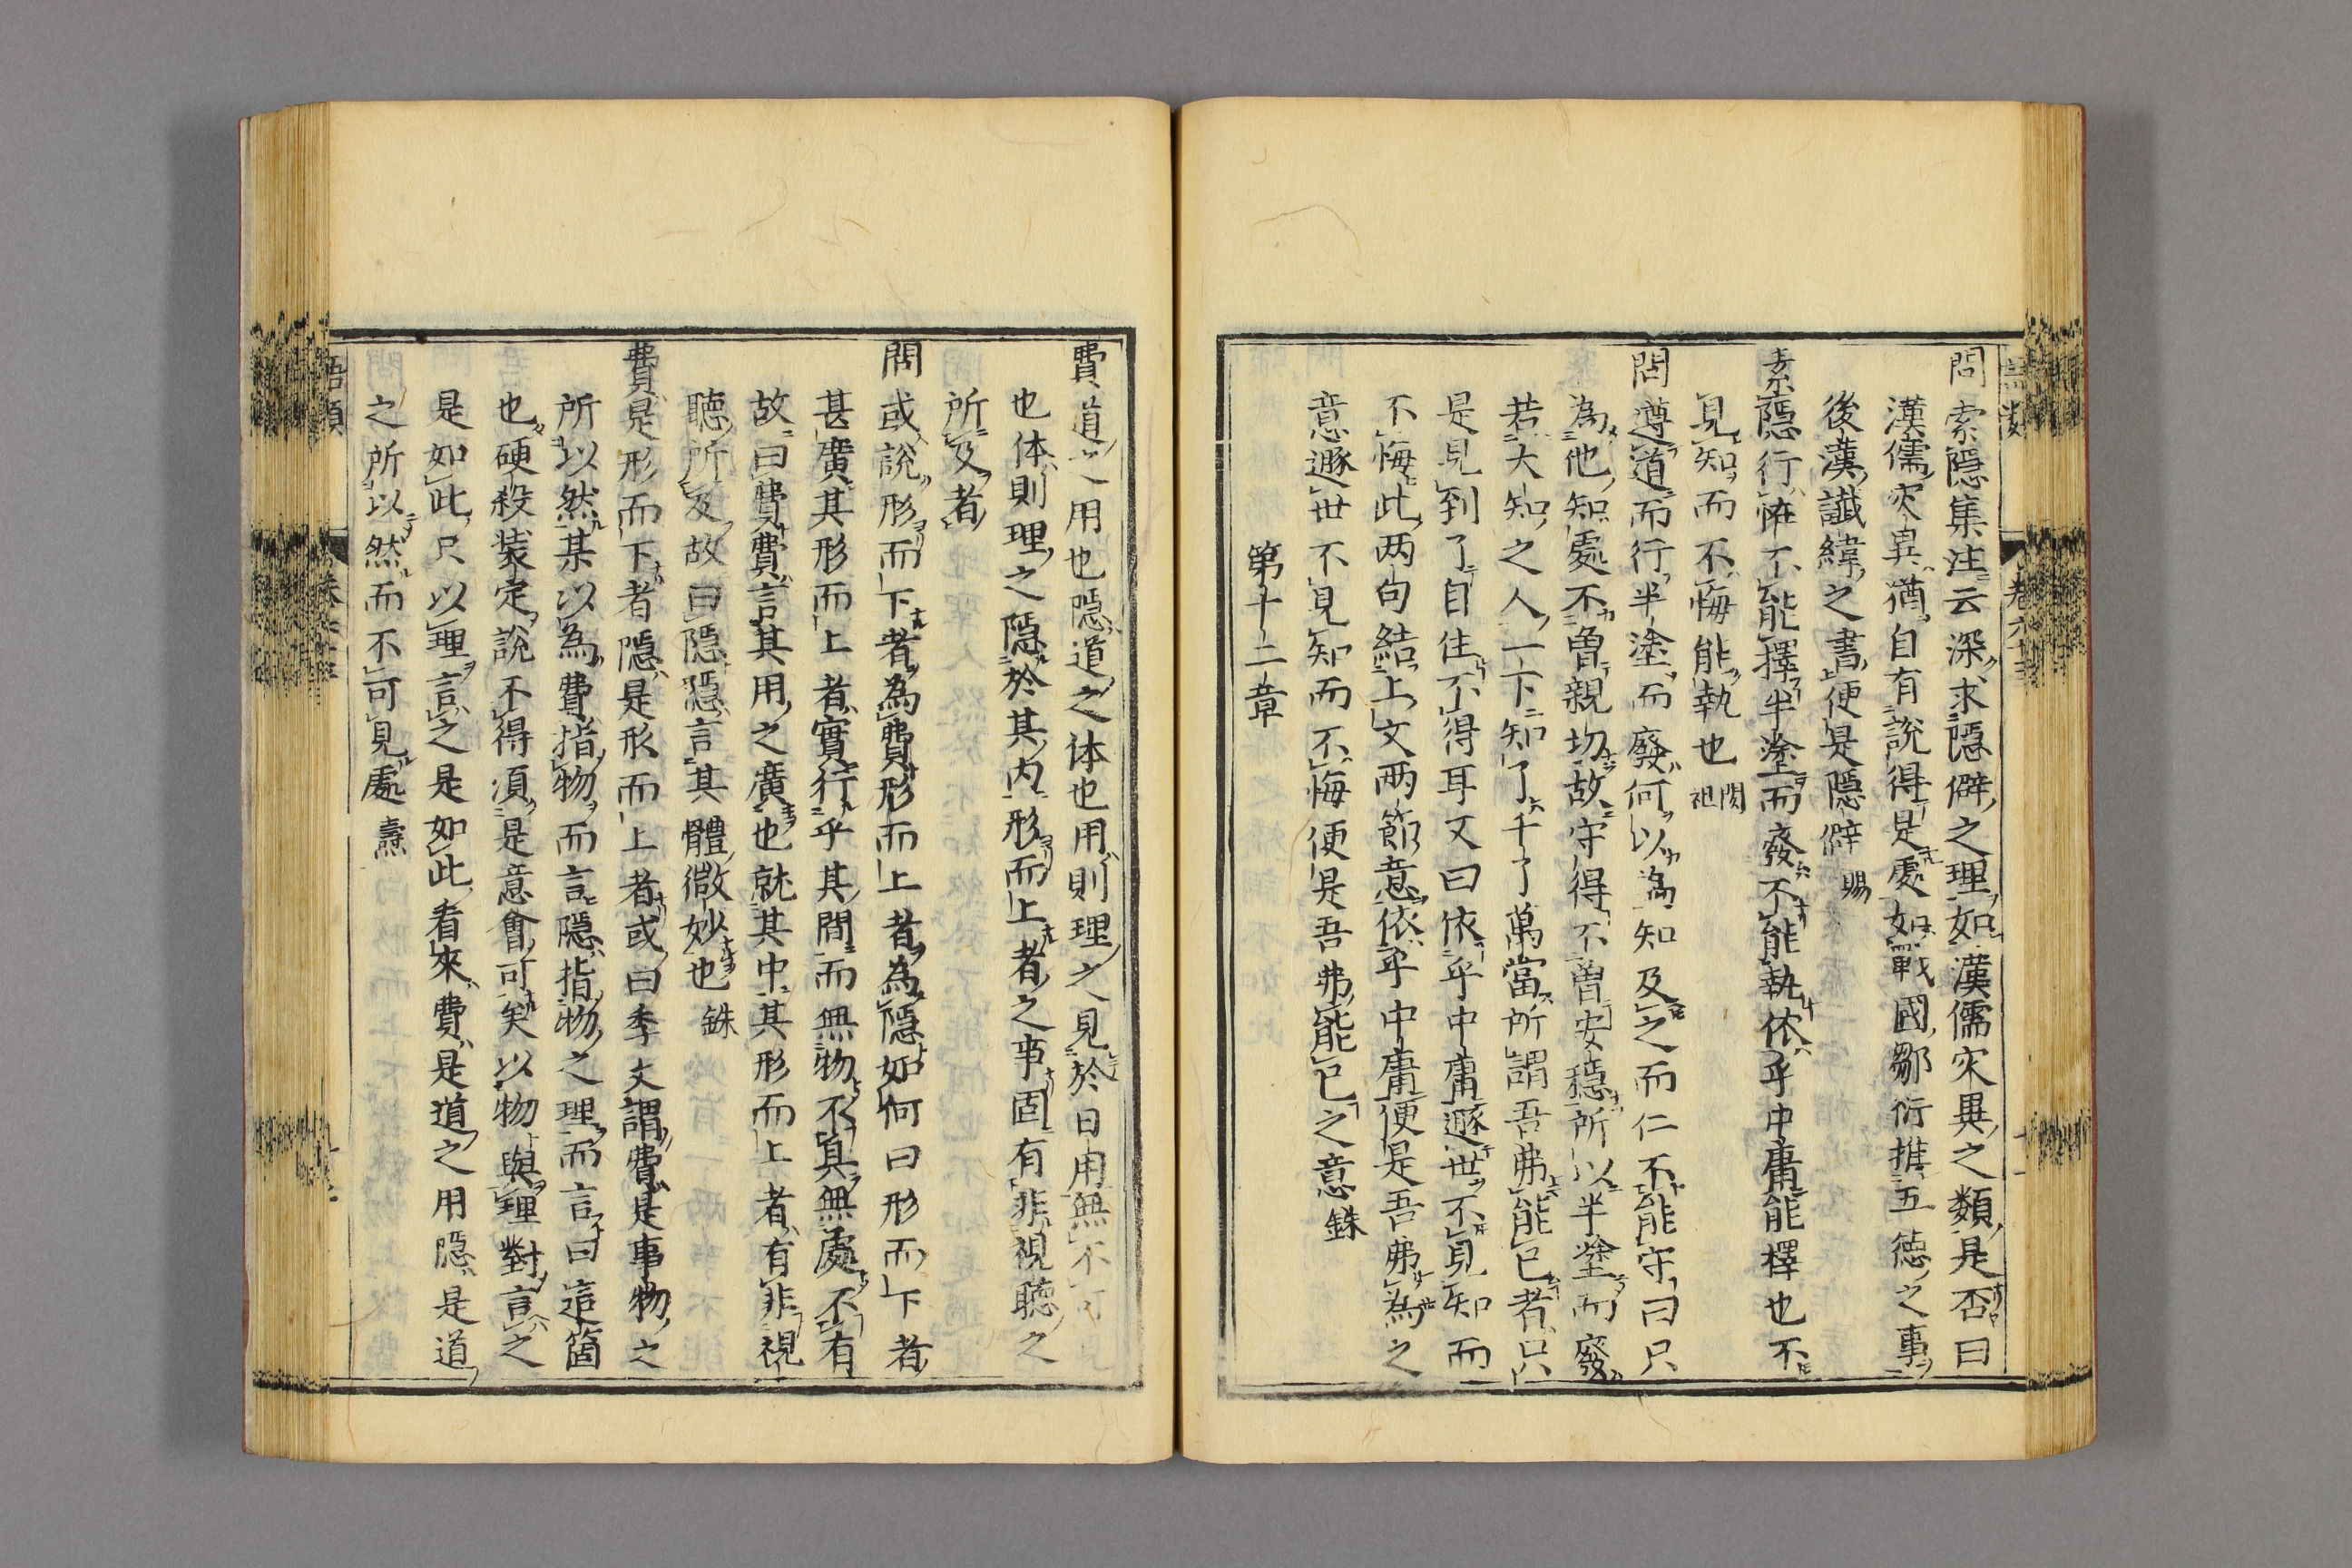 問索隱集注云深求隱僻之理如漢儒灾異之類是否曰
漢儒灾異猶自有說得是處如戰國鄒衍推五德之事
後漢讖緯之書便是隱僻 賜
素隱行怪不能擇半塗而廢不能執依乎中庸能擇也不
見知而不悔能執也 閎祖
問遵道而行半塗而廢何以為知及之而仁不能守曰只
為他知處不曾親切故守得不曾安穩所以半塗而廢
若大知之人一下知了千了萬當所謂吾弗能已者只
是見到了自住不得耳又曰依乎中庸遯世不見知而
不悔此两句結上文两節意依乎中庸便是吾弗為之
意遯世不見知而不悔便是吾弗能已之意 銖
第十二章
費道之用也隱道之体也用則理之見於日用無不可見
也体則理之隱於其内形而上者之事固有非視聽之
所及者
問或說形而下者為費形而上者為隱如何曰形而下者
甚廣其形而上者實行乎其間而無物不具無處不有
故曰費費言其用之廣也就其中其形而上者有非視
聽所及故曰隱隱言其體微妙也 銖
費是形而下者隱是形而上者或曰季丈謂費是事物之
所以然某以為費指物而言隱指物之理而言曰這箇
也硬殺裝定說不得須是意會可矣以物與理對言之
是如此只以理言之是如此看來費是道之用隱是道
之所以然而不可見處 燾
語類
卷六十三